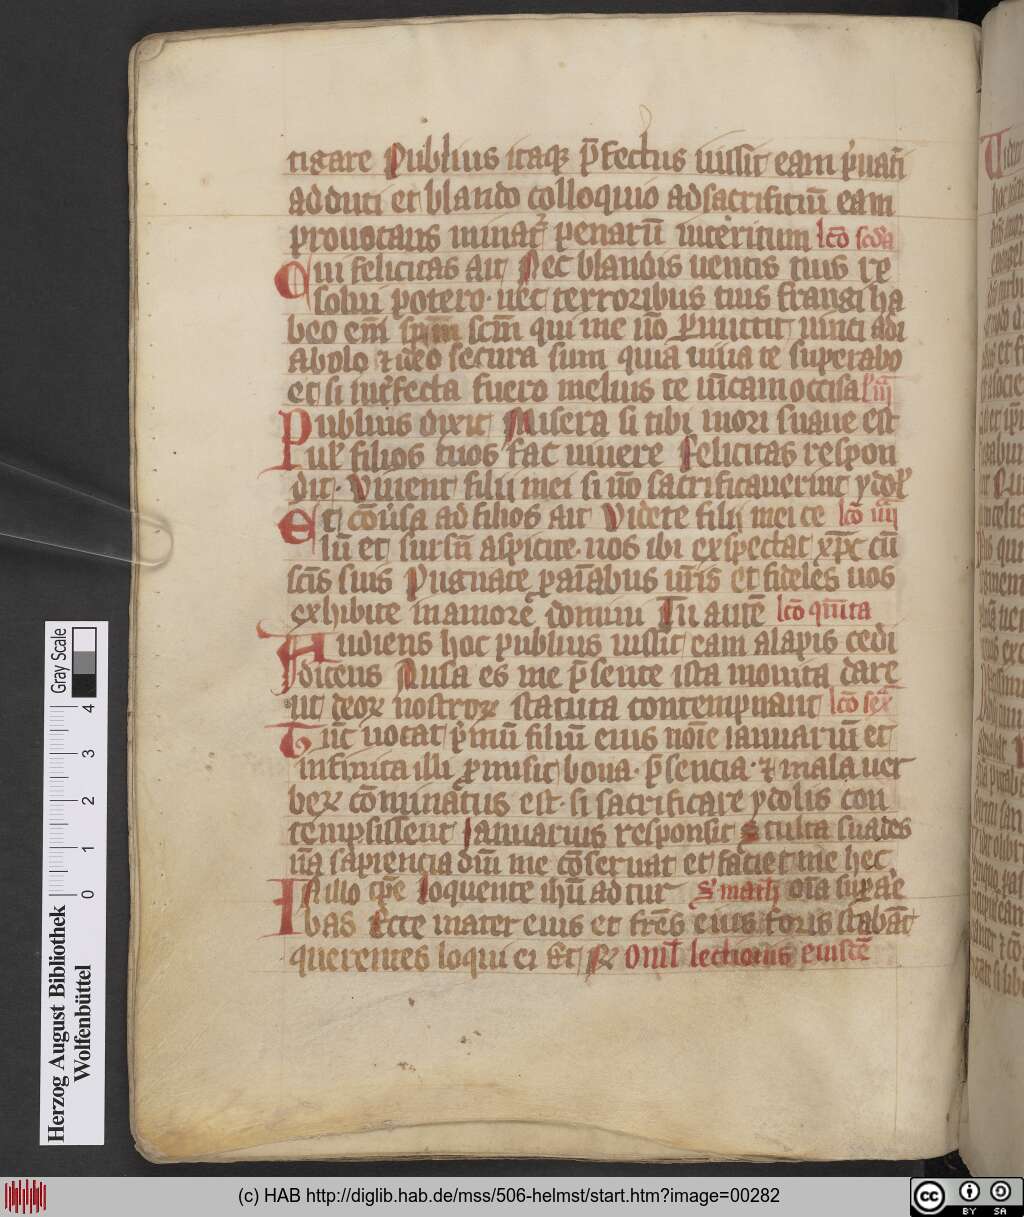 tigare Publius itaqꝫ p̄fectus iussit eam p̄uati
adduci et blando colloquio ad sacrificiū eam
prouocans minat᷑ penarū interitum lcō scd̄a
Cui felicitas ait Nec blandis uentis tuis re
solui potero · nec terroribus tuis frangi ha
beo em̄ sp̄m scm̄ qui me nō ꝑmittit uinci a di
abolo ⁊ ideo secura sum quia uiua te superabo
et si int̓fecta fuero melius te uīcam occisa l̄ iij
Publius dixit Misera si tibi mori suaue est
uel̓ filios tuos fac uiuere Felicitas respon
dit · Viuent filij mei si nō sacrificauerint ydol̓
Et cōuersa ad filios ait Videte filij mei ce lcō iiij
lū et sursū aspicite · uos ibi expectat xp̄c cū
scīs suis Pugnate ꝓ aīabus ur̄is et fideles uos
exhibite in amore domini Tu autē lcō quīta
Audiens hoc publius iussit eam alapis cedi
dicens Ausa es me p̄sente ista monita dare
ut deoꝝ nostroꝝ statuta contempnant lcō sex̄
Tūc uocat p̓mū filiū eius noīe ianuariū et
infinita illi ꝓmisit bona · p̄sencia · ⁊ mala uer
beꝝ cōminatus est · si sacrificare ydolis con
tempsissent Ianuarius responsit Stulta suades
nā sapiencia dn̄i me cōseruat et faciet me hec
In illo tp̄e Loquente ihū ad tur S matħ oīa suꝑare
bas Ecce mater eius et fr̄es eius foris stabāt
querentes loqui ei Et
Herzog August Bibliothek
Wolfenbüttel
Gray Scale
0 1 2 3 4
(c) HAB http://diglib.hab.de/mss/506-helmst/start.htm?image=00282
cc BY SA